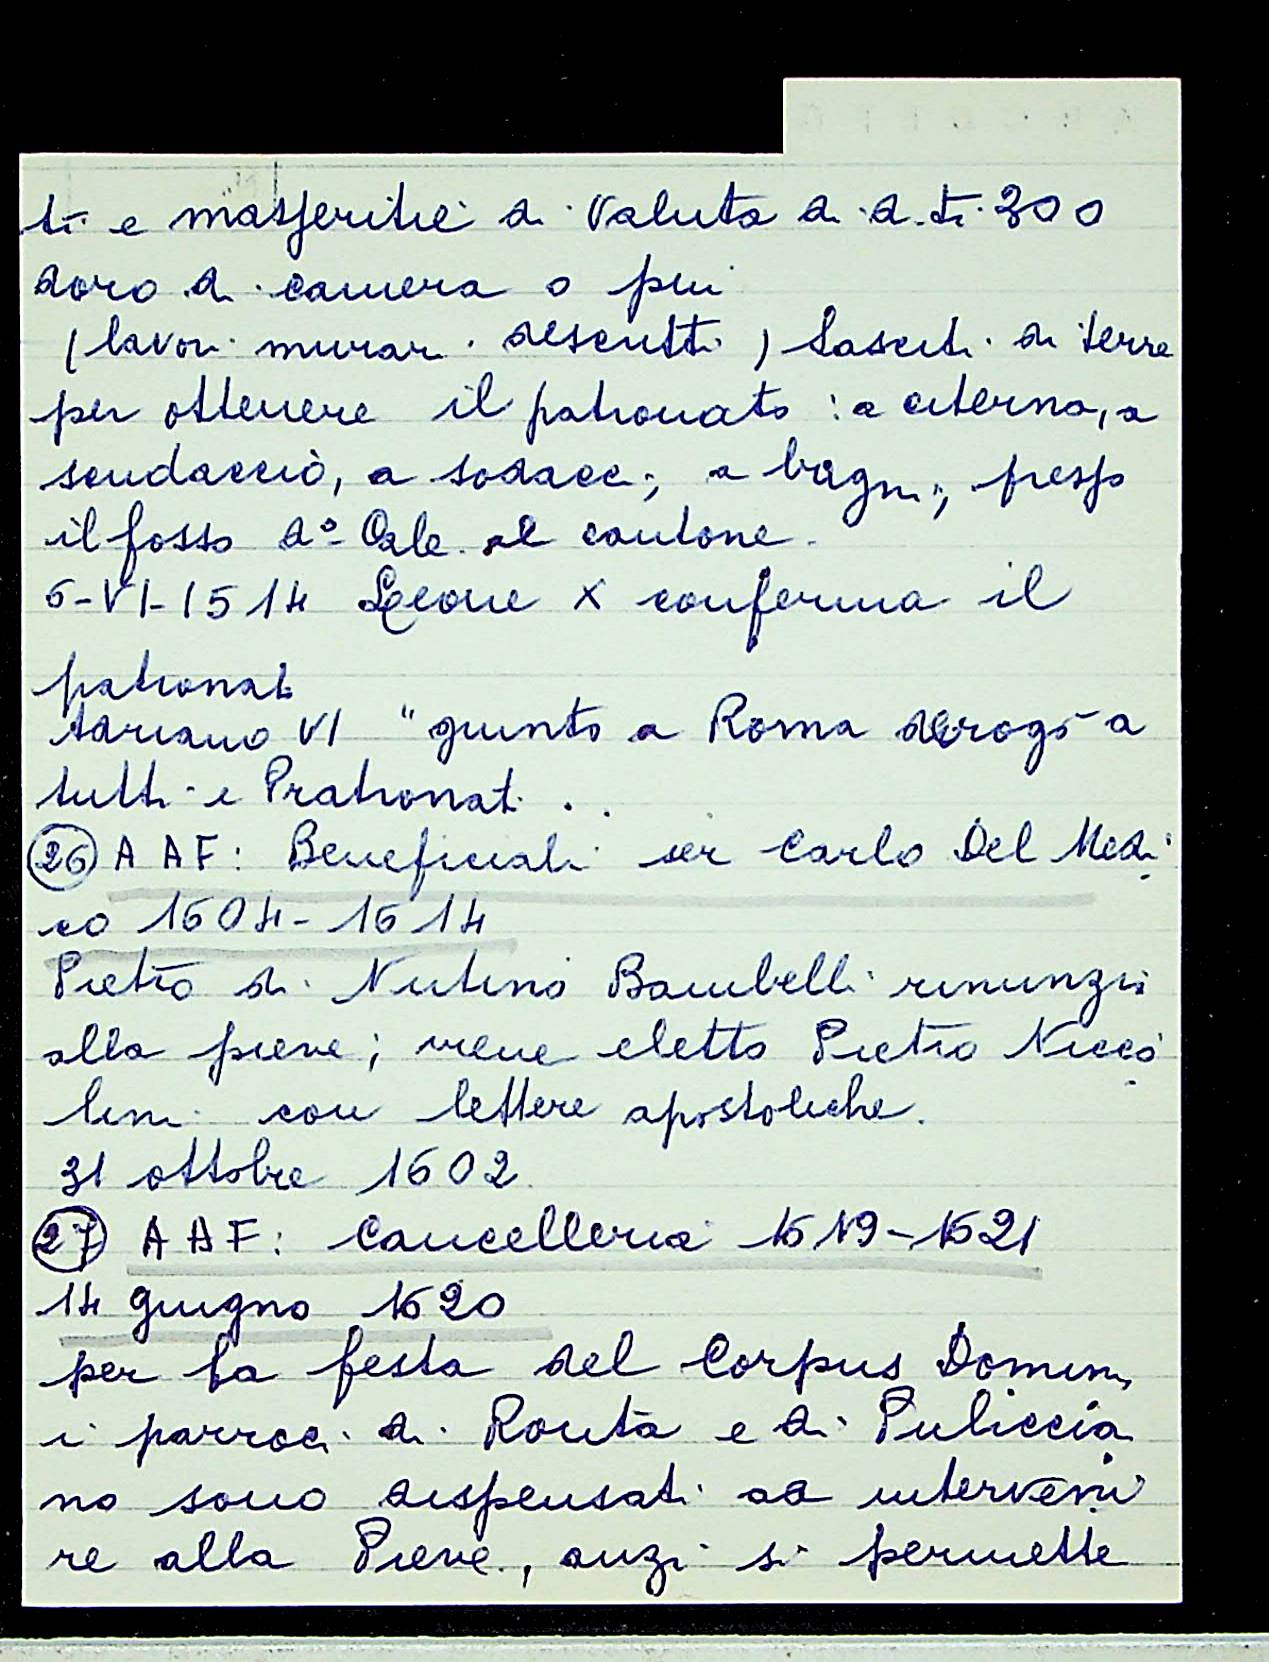 ti e masseritie di valuta di d.ti 300
doro di camera o piu
(lavori murari descritti) Lasciti di terre
per ottenere il patronato: a citerna, a
scudaccio, a sodacci; a bagni, presso
il fosso d° Cale al cantone.
6-VI-1514 Leone X conferma il
patronat.
Adriano VI "giunto a Roma derogò a
tutti i Pratronati . .
(26) A A F: Beneficiali ser Carlo Del Medi
co 1604-1614
Pietro di Nutino Bambelli rinunzia
alla pieve; viene eletto Pietro Nicco
lini con lettere apostoliche.
31 ottobre 1602
(27) A A F: Cancelleria 1619-1621
14 giugno 1620
per la festa del Corpus Domini,
i parroci di Ronta e di Puliccia
no sono dispensati da interveni
re alla Pieve, anzi si permette